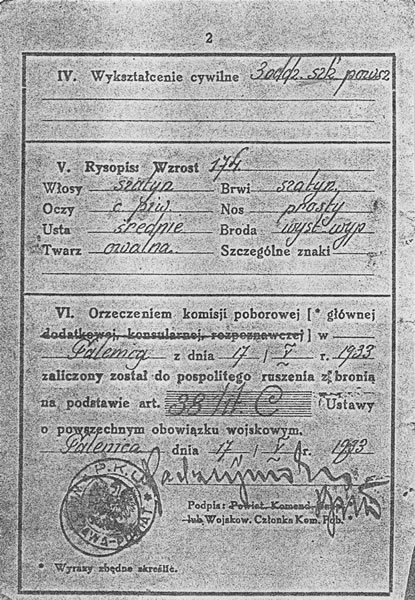 2
IV. Wykształcenie cywilne 3 oddz. szk. powsz.
V. Rysopis: Wzrost 174
Włosy szatyn Brwi szatyn
Oczy c. piw. Nos prosty
Usta średnie Broda wyst. wyp
Twarz owalna Szczególne znaki
VI. Orzeczeniem komisji poborowej [* głównej
dodatkowej, konsularnej, rozpoznawczej] w
z dnia 17 / V r. 1933
zaliczony został do pospolitego ruszenia z bronią
na podstawie art. 38 lit C Ustawy
o powszechnym obowiązku wojskowym.
Falenica dnia 17 / V r. 1933
P.K.U.
Podpis: Powiat. Komend.
lub Wojskow. Członka Kom. Pob.
* Wyrazy zbędne skreślić.